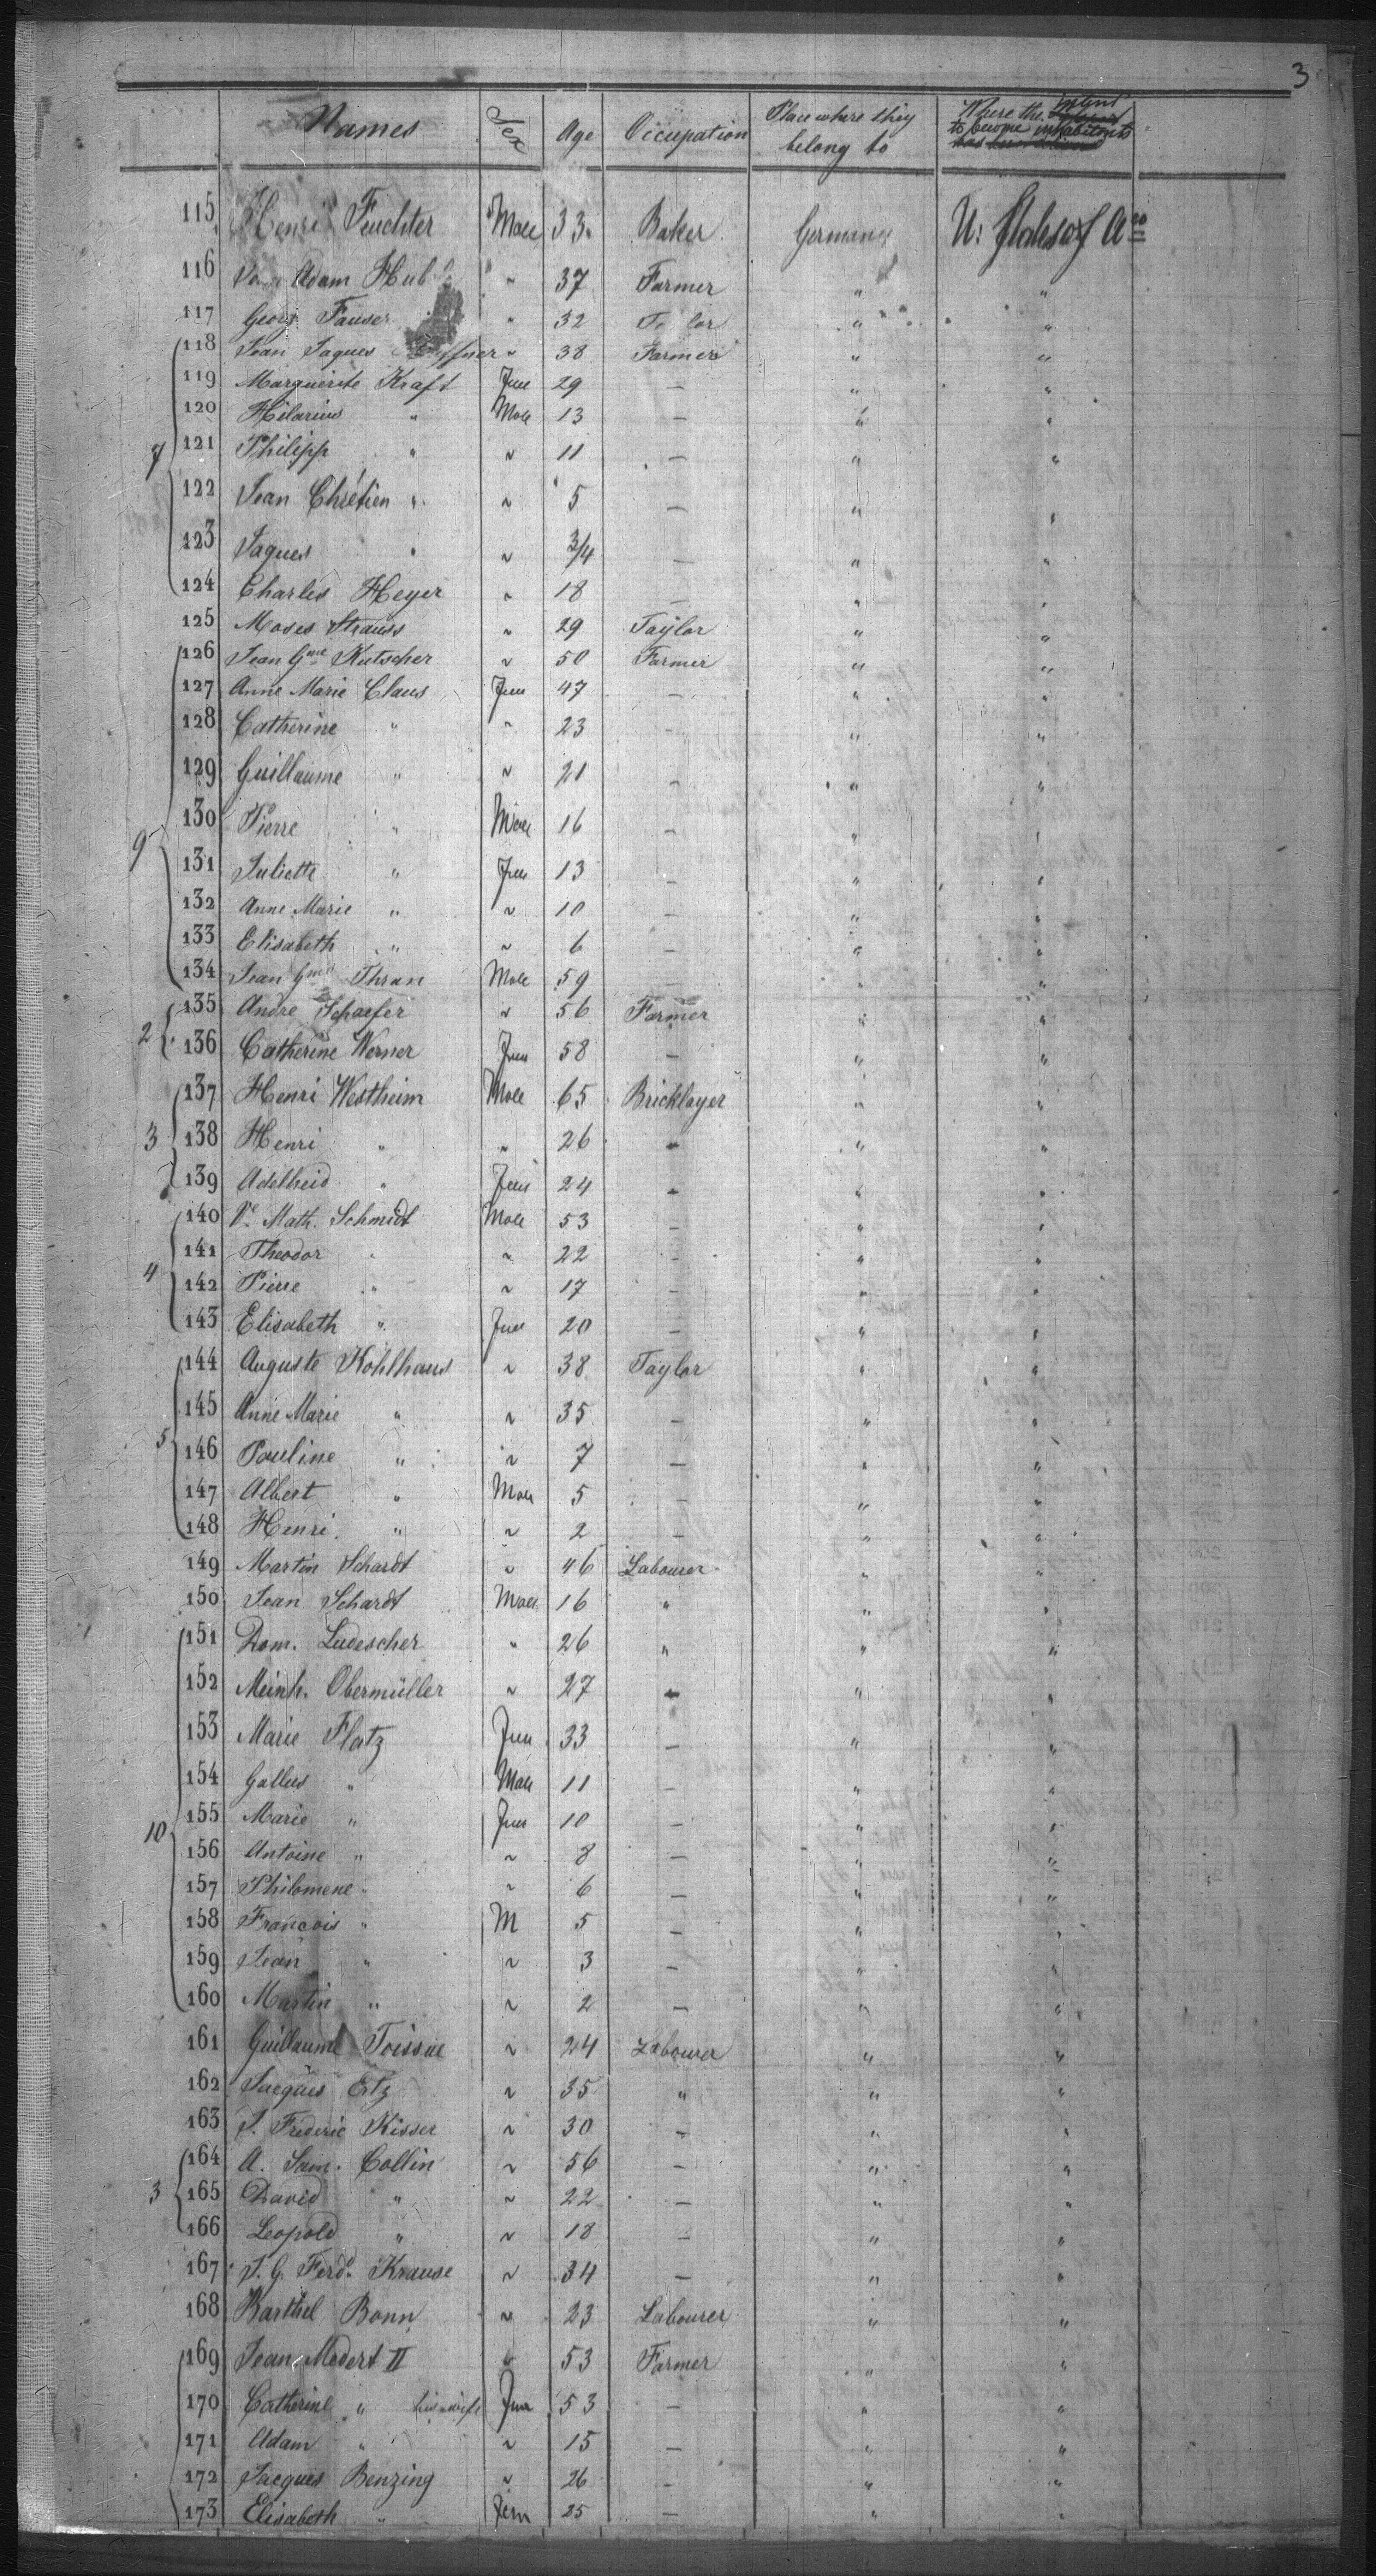 3
Names Sex Age Occupation Place where they belong to Where the intend to become inhabitants
115 Henri Feuchter Male 33 Baker Germany U. States of Aca
116 Adam Hub " 37 Farmer " "
117 Georg Fauser " 32 T lor " "
118 Jean Jaques ffner " 38 Farmer " "
7 119 Marguerite Kraft Fem 29 — " "
120 Hilarius " Male 13 — " "
121 Philipp " " 11 — " "
122 Jean Chrétien " " 5 — " "
123 Jaques " " 3/4 — " "
124 Charles Heyer " 18 — " "
125 Moses Strauss " 29 Taylor " "
126 Jean Gme Kutscher " 50 Farmer " "
127 Anne Marie Claus Fem 47 — " "
128 Catherine " " 23 — " "
129 Guillaume " " 21 — " "
9 130 Pierre " Male 16 — " "
131 Juliette " Fem 13 — " "
132 Anne Marie " " 10 — " "
133 Elisabeth " " 6 — " "
134 Jean Gme Thran Male 59 — " "
2 135 André Schaefer " 56 Farmer " "
136 Catherine Werner Fem 58 — " "
137 Henri Westheim Male 65 Bricklayer " "
3 138 Henri " " 26 " " "
139 Adelheid " Fem 24 — " "
140 Ve. Math. Schmidt Male 53 — " "
141 Theodor " " 22 — " "
4 142 Pierre " " 17 — " "
143 Elisabeth " Fem 20 — " "
144 Auguste Kohlhaus " 38 Taylor " "
145 Anne Marie " " 35 — " "
5 146 Pauline " " 7 — " "
147 Albert " Male 5 — " "
148 Henri " " 2 — " "
149 Martin Schardt " 46 Labourer " "
150 Jean Schardt Male 16 " " "
151 Dom. Ludescher " 26 " " "
152 Meinh. Obermüller " 27 " " "
153 Marie Flatz Fem 33 — " "
154 Gallus " Male 11 — " "
155 Marie " Fem 10 — " "
10 156 Antoine " " 8 — " "
157 Philomene " " 6 — " "
158 François " M 5 — " "
159 Jean " " 3 — " "
160 Martin " " 2 — " "
161 Guillaume Toissue " 24 Labourer " "
162 Jacques Ertz " 35 " " "
163 J. Frederic Kisser " 30 — " "
164 A. Sam. Collin " 56 — " "
3 165 David " " 22 — " "
166 Leopold " " 18 — " "
167 J. G. Ferdd. Krause " 34 — " "
168 Barthel Bonn " 23 Labourer " "
169 Jean Medert II " 53 Farmer " "
170 Catherine " his wife Fem 53 — " "
171 Adam " " 15 — " "
172 Jacques Benzing " 26 — " "
173 Elisabeth " Fem 25 — " "